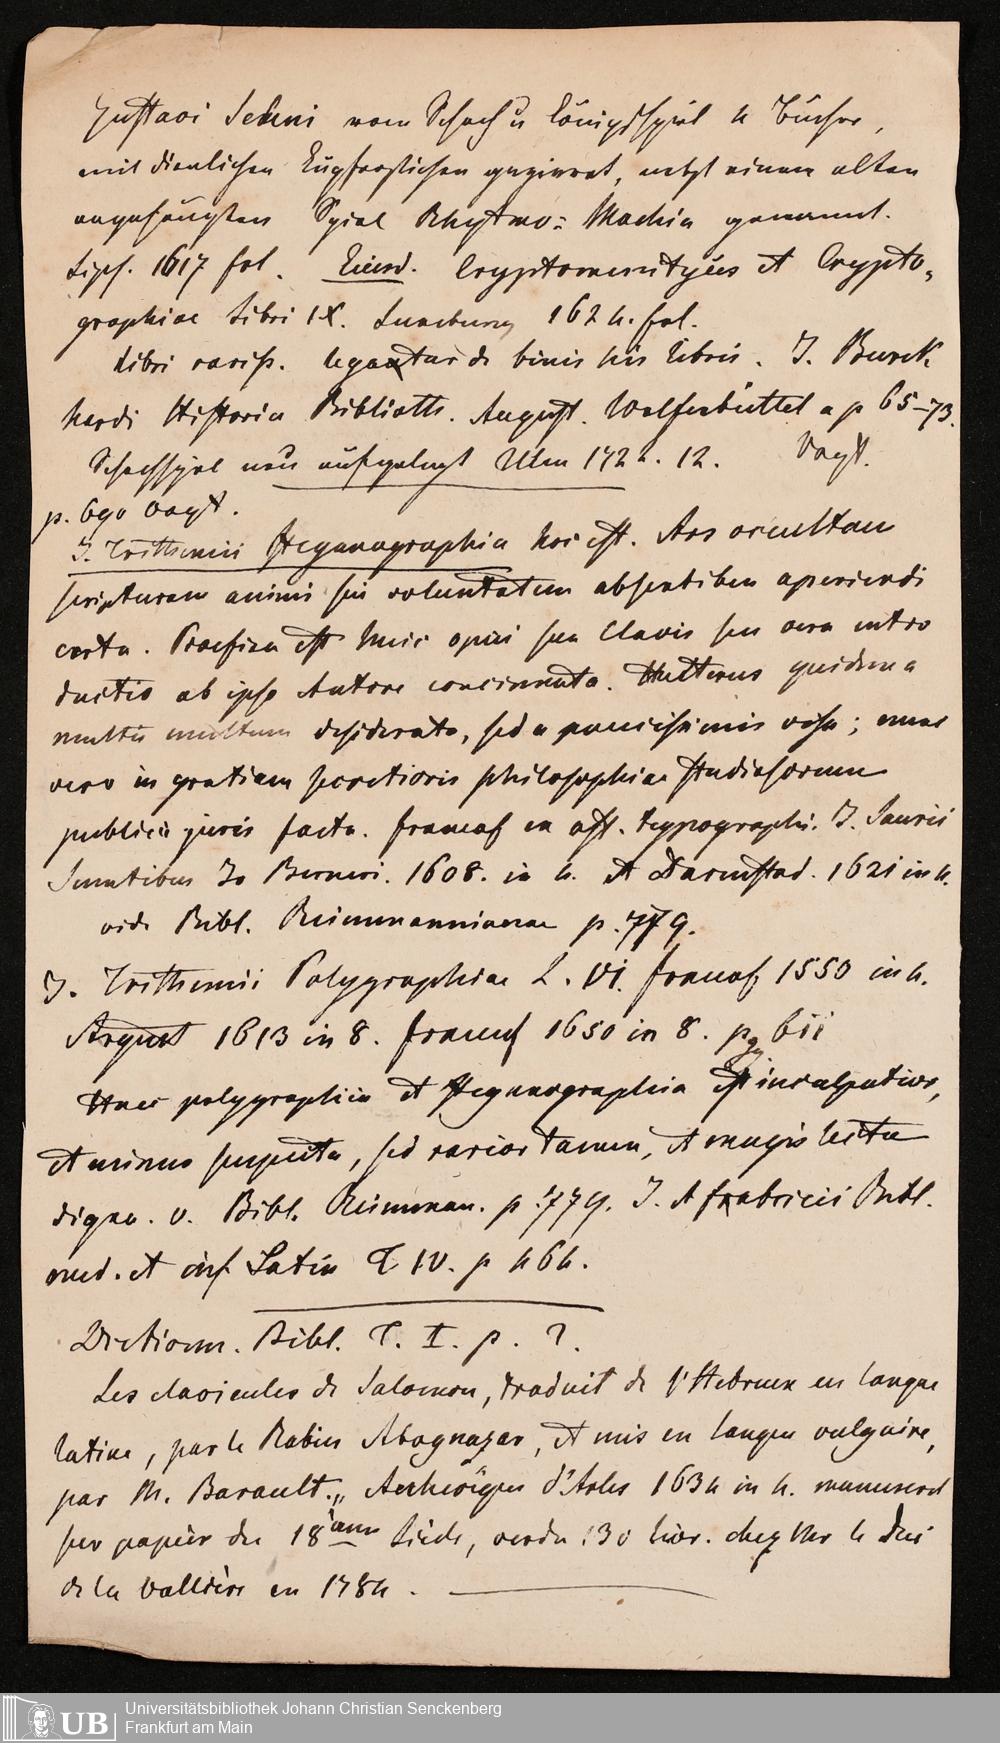 Gustavi Seleni vom Schach u Königsspiel 4 Bücher,
mit dienlichen Kupferstichen geziert, nebst einem alten
angehängten Spiel Rhytmo-Machia genannt.
Lips. 1617 fol. Eiusd. Cryptomenityces et Crypto-
graphiae Libri IX. Luneburg 1624. fol.
Libri rariss. legantur de binis his libris. J. Burck
hardi Historia Biblioth. August. Wolfenbüttel a p 65-73.
Schachspiel neu aufgelegt Ulm 1722. 12. Vogt.
p. 690 Vogt.
J. Trithemii Steganographia hoc est. Ars occultam
scripturam animi sui voluntatem absentibus aperiendi
certa. Praefixa est huic operi sua Clavis seu vera intro
ductio ab ipso Autore concinnata. Hactenus quidem a
multis multum desiderata, sed a paucissimis visa; nunc
vero in gratiam secretioris philosophiae studiosorum
publicis juris facta. francof ex off. typographi. J. Saurii
Sumtibus Jo Berneri. 1608. in 4. et Darmstad. 1621 in 4.
vide Bibl. Reimmannianae p. 779.
J. Trithemii Polygraphiae L. VI. francof 1550 in 4.
August 1613 in 8. francof 1650 in 8. pag 611
Haec polygraphia et steganographia est inculpatior,
et minus suspecta, sed rarior tamen, et magis lectu
digna. v. Bibl. Reimman. p. 779. J. A fabricii Bibl.
med. et inf Latin T IV. p 464.
Dictionn. Bibl. T. I. p. ?.
Les clavicules de Salomon, traduit de l'Hebreux en langue
latine, par le Rabin Abognazar, et mis en langue vulgaire,
par M. Barault., Archevêque d'Arles 1634 in 4. manuscrit
sur papier du 18 ieme Siècle, vendu 130 livr. chez Mr le Duc
de la Valliere en 1784.
Universitätsbibliothek Johann Christian Senckenberg
Frankfurt am Main
UB